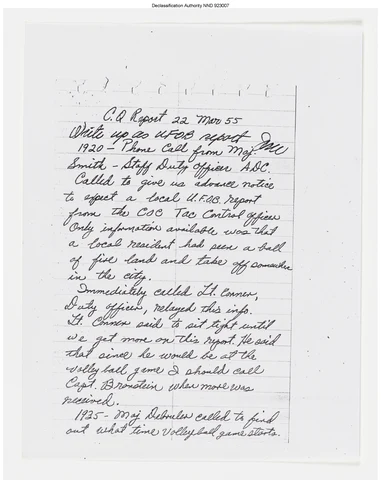 Declassification Authority NND 923007
C.Q Report 22 Mar 55
Write up as UFOB report
1920 - Phone Call from Maj
Smith - Staff Duty Officer ADC.
Called to give us advance notice
to expect a local U.F.O.B. report
from the COC Tac Control officer
Only information available was that
a local resident had seen a ball
of fire land and take off somewhere
in the city.
Immediately called Lt. Conner,
Duty officer, relayed this info.
Lt. Conner said to sit tight until
we get more on this report. He said
that since he would be at the
volley ball game I should call
Capt. Bronstein when more was
received.
1935 - Maj called to find
out what time volleyball game starts.